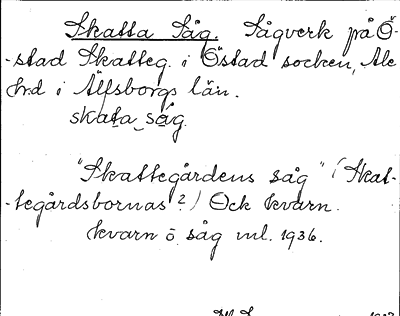 Skatta Såg. Sågverk på Ö-
-stad Skatteg. i Östad socken, Ale
hd i Älfsborgs län.
skata såg.
"Skattegårdens såg" (Skat-
-tegårdsbornas?) Ock kvarn.
kvarn o. såg nl. 1936.